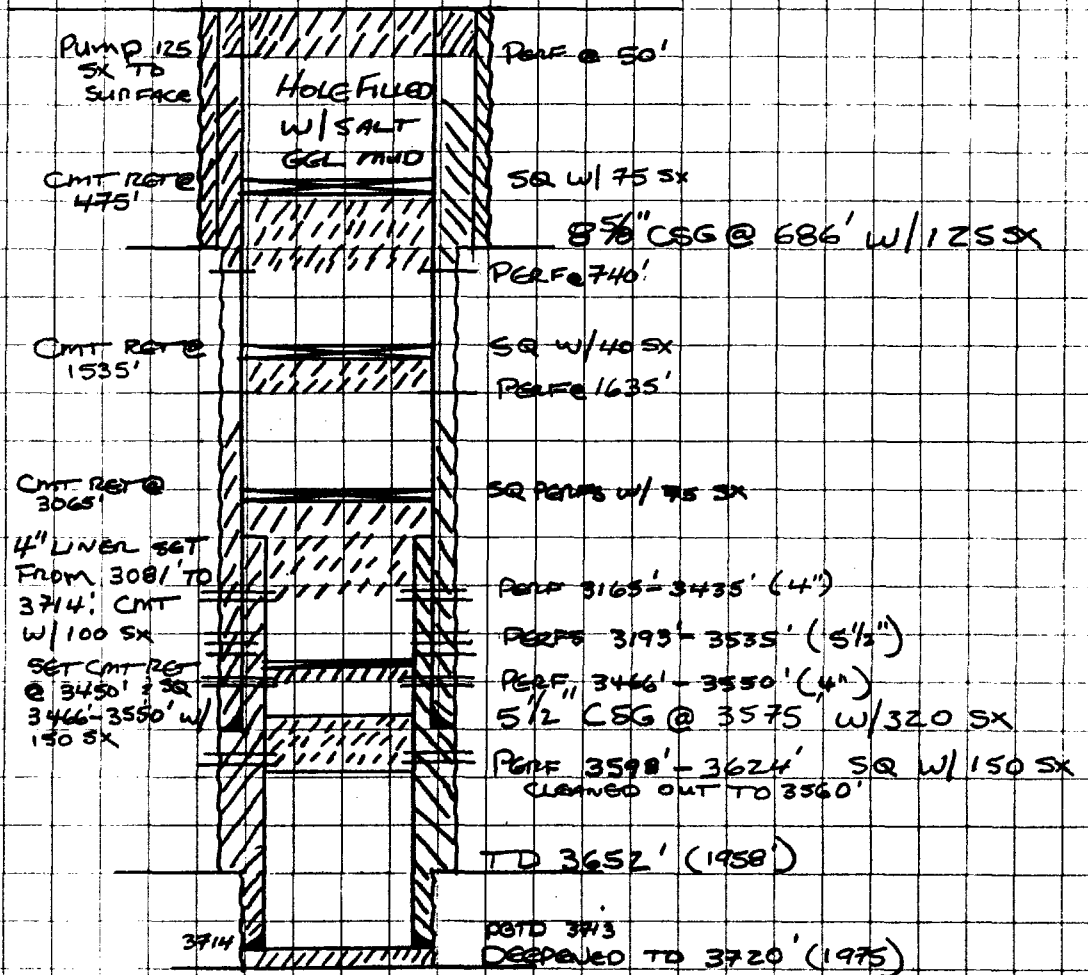 Pump 125
SX TO
SURFACE
PERF @ 50'
HOLE FILLED
W/ SALT
GEL MUD
CMT RET @
475'
SQ W/ 75 SX
8 5/8" CSG @ 686' W/ 125 SX
PERF @ 740'
CMT RET @
1535'
SQ W/ 40 SX
PERF @ 1635'
CMT RET @
3065'
SQ PERFS W/ 75 SX
4" LINER SET
FROM 3081' TO
3714'. CMT
W/ 100 SX
PERF 3165'-3435' (4")
PERFS 3193'-3535' (5 1/2")
SET CMT RET
@ 3450' & SQ
3466'-3550' W/
150 SX
PERF 3466'-3550' (4")
5 1/2" CSG @ 3575' W/ 320 SX
PERF 3598'-3624' SQ W/ 150 SX
CLEANED OUT TO 3560'
TD 3652' (1958)
3714
PBTD 3713
DEEPENED TO 3720' (1975)